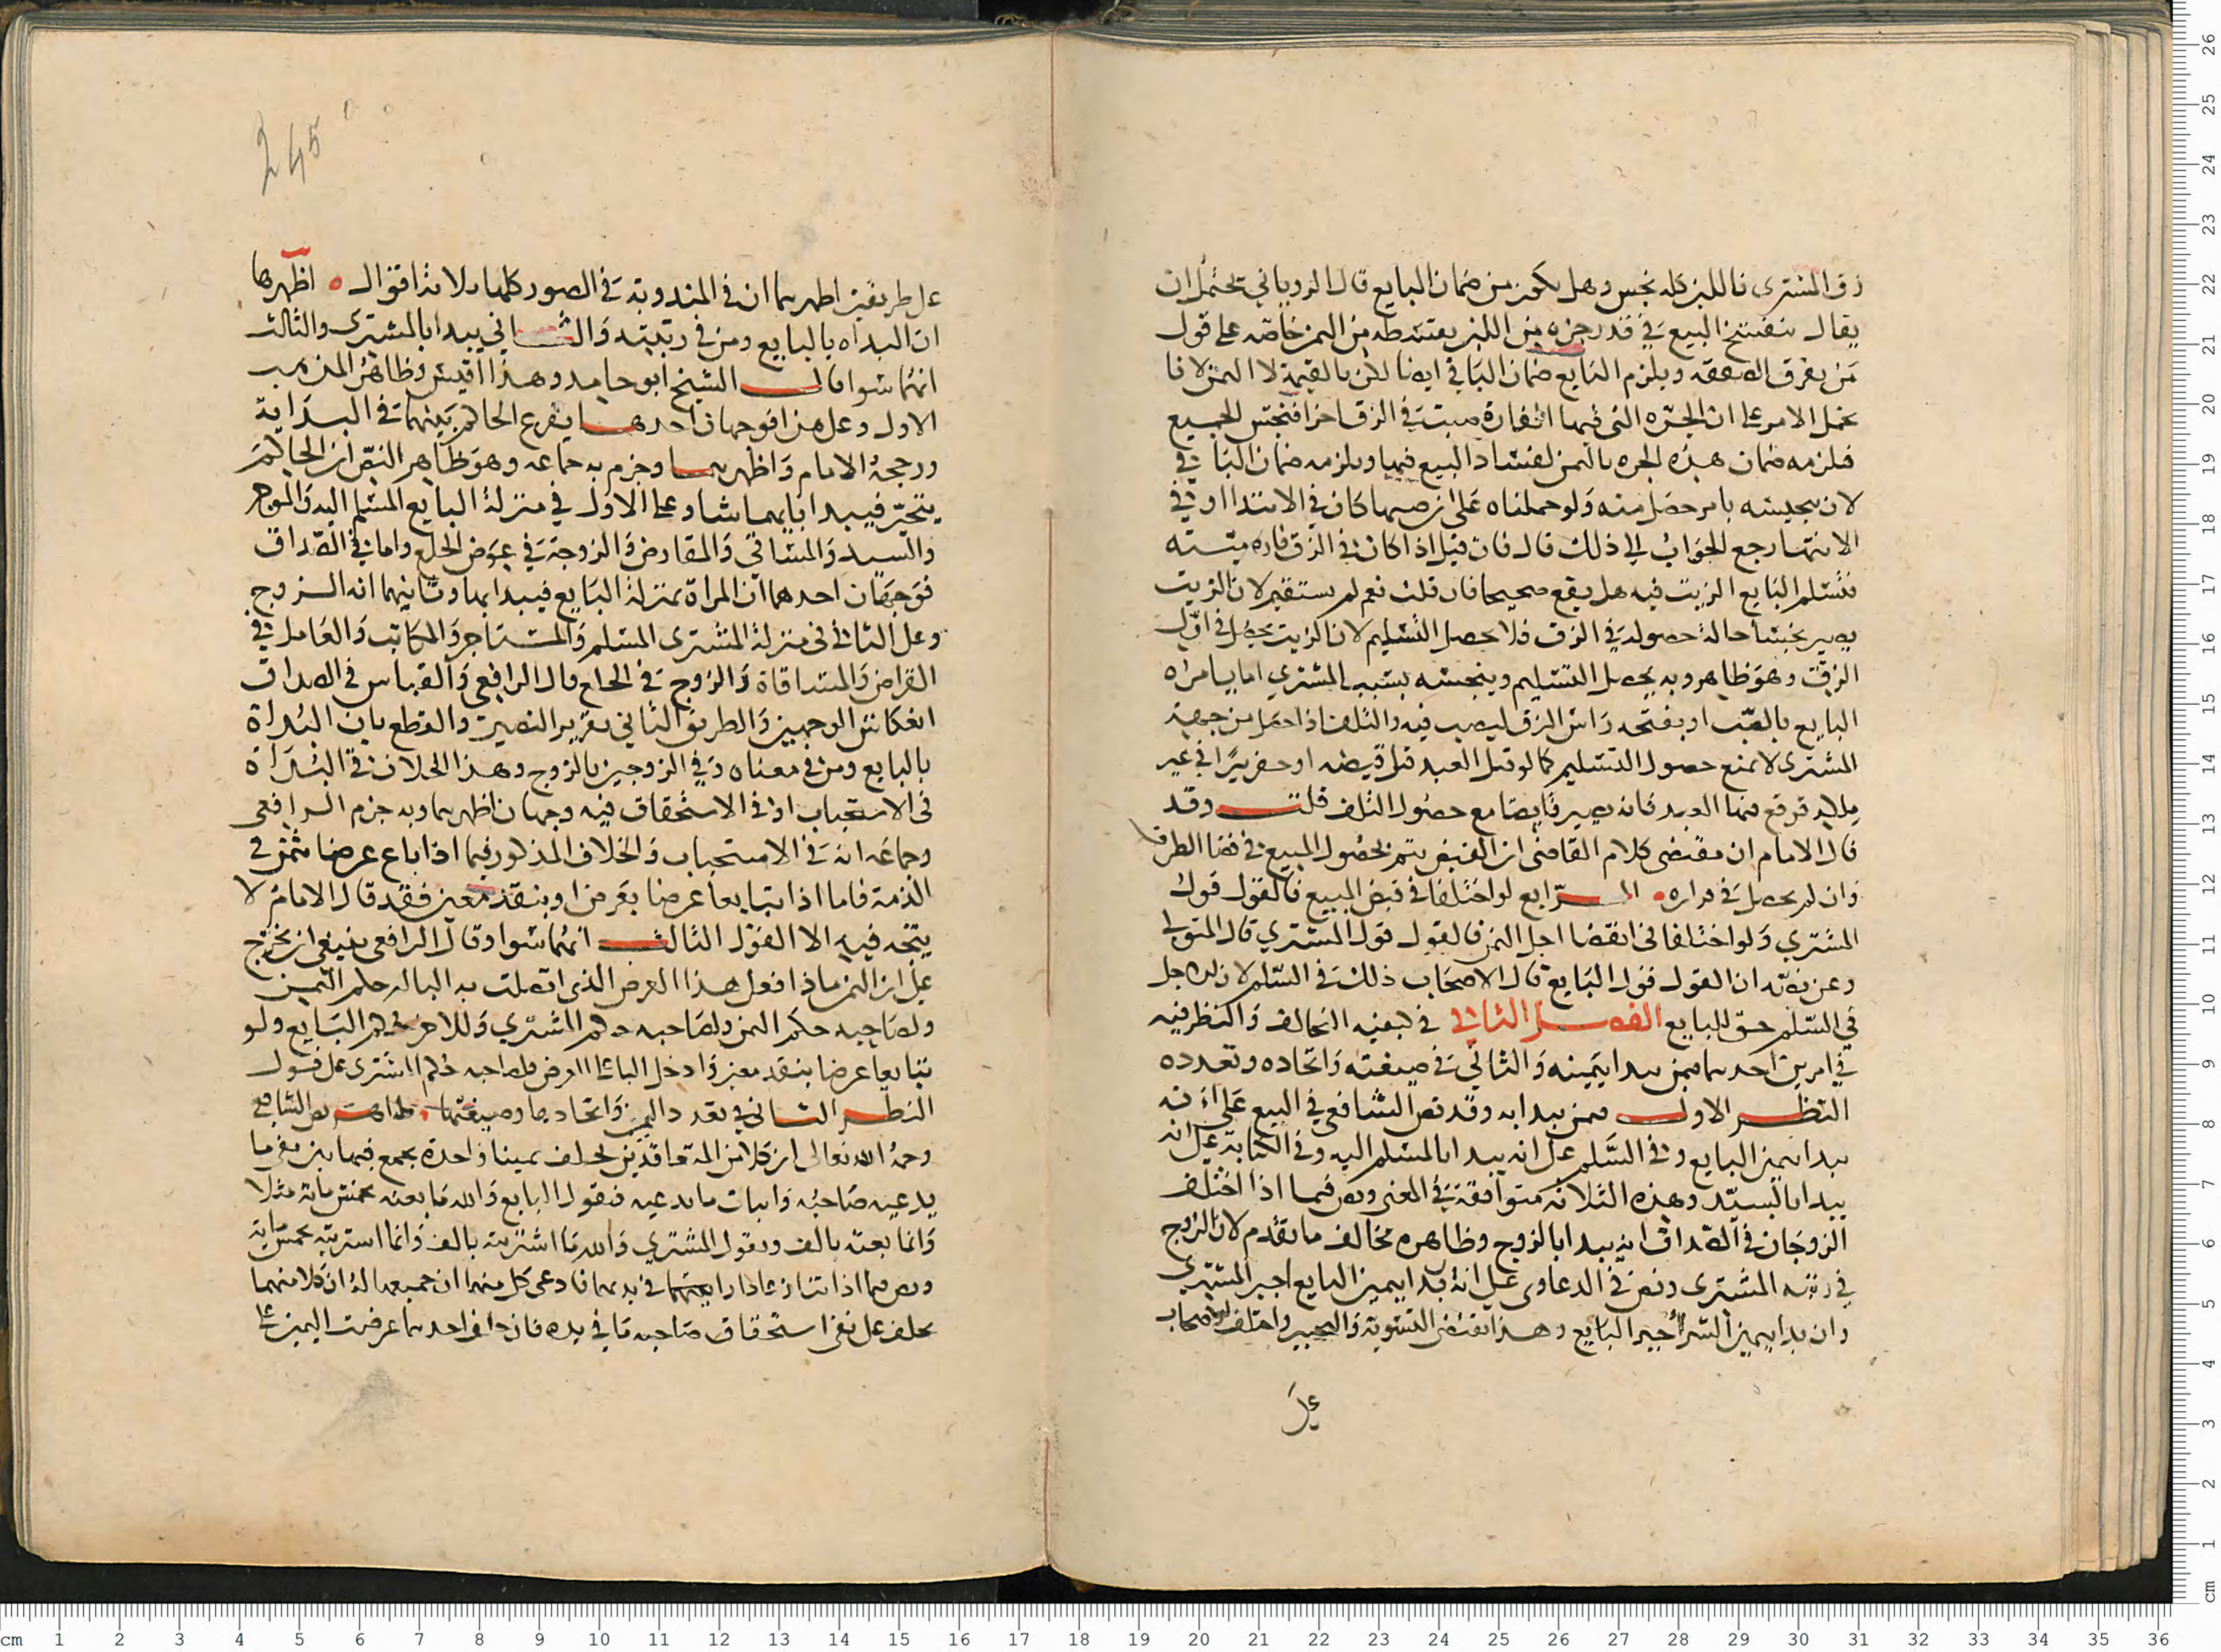 زق المشتري فاللبن كله نجس وهل يكون من ضمان البايع قال الروياني يحتمل ان
يقال ينفسخ البيع في قدر جزء من اللبن بقسطه من الثمن خاصة على قول
من يفرق الصفقة ويلزم البايع ضمان الباقي ايضا لكن بالقيمة لا الثمن لانا
نحمل الامر على ان الجره التي فيها الفارة صبت في الزق اخرا فنجس الجميع
فلزمه ضمان هذه الجره بالثمن لفساد البيع فيها ويلزمه ضمان الباقي
لان تنجيسه بامر حصل منه ولو حملناه على ان صبها كان في الابتدا او في
الانتها رجع الجواب الى ذلك قال فان قيل اذا كان في الزق فاره ميتة
فسلم البايع الزيت فيه هل يقع صحيحا فان قلت نعم لم يستقم لان الزيت
يصير نجسا حالة حصوله في الزق فلا حصل التسليم لان الزيت يحصل في اول
الزق وهو ظاهر وبه يحصل التسليم وينجسه بسبب المشتري اما بامراه
البايع بالصب او بفتحه راس الزق ليصب فيه والتلف اذا حصل من جهة
المشتري لا يمنع حصول التسليم كما لو قتل العبد قبل قبضه او حفر بيرا في غير
ملكه فوقع فيها العبد فانه يصير قابضا مع حصول التلف قلت وقد
قال الامام ان مقتضى كلام القاضي ان القبض يتم بحصول المبيع في فضا الظرف
وان لم يحصل في قراره الرابع لو اختلفا في قبض المبيع فالقول قول
المشتري ولو اختلفا في انقضا اجل الثمن فالقول قول المشتري قال المتولي
وعن نصه ان القول قول البايع قال الاصحاب ذلك في السلم لان الاجل
في السلم حق للبايع الفصل الثاني في كيفية التحالف والنظر فيه
في امرين احدهما فيمن يبدا بيمينه والثاني في صيغته واتحاده وتعدده
النظر الاول فيمن يبدا به وقد نص الشافعي في البيع على انه
يبدا بيمين البايع وفي السلم على انه يبدا بالمسلم اليه وفي الكتابة على انه
يبدا بالسيد وهذه الثلاثة متوافقة في المعنى ونص فيما اذا اختلف
الزوجان في الصداق انه يبدا بالزوج وظاهره مخالف ما تقدم لان الزوج
في رتبة المشتري ونص في الدعاوى على انه ان بدا بيمين البايع اجبر المشتري
وان بدا بيمين المشتري اجبر البايع وهذا يقتضي التسوية والتخيير واختلف الاصحاب
على
245
على طريقين اظهرهما ان في المندوبة في الصور كلها ثلاثة اقوال اظهرها
ان البداه بالبايع ومن في رتبته والثاني يبدا بالمشتري والثالث
انهما سوا قال الشيخ ابو حامد وهذا اقيس وظاهر المذهب
الاول وعلى هذا فوجهان احدهما يقرع الحاكم بينهما في البداية
ورجحه الامام واظهرهما وجزم به جماعه وهو ظاهر النص ان الحاكم
يتخير فيبدا بايهما شا وعلى الاول في منزلة البايع المسلم اليه والموجر
والسيد والمساقي والمقارض والزوجة في عوض الخلع واما في الصداق
فوجهان احدهما ان المراة بمنزلة البايع فيبدا بها وثانيهما انه الزوج
وعلى الثاني في منزلة المشتري المسلم والمستاجر والمكاتب والعامل في
القراض والمساقاة والزوج في الخلع قال الرافعي والقياس في الصداق
انعكاس الوجهين والطريق الثاني تقرير النصين والقطع بان البداة
بالبايع ومن في معناه وفي الزوجين بالزوج وهذا الخلاف في البداة
في الاستحباب او في الاستحقاق فيه وجهان اظهرهما وبه جزم الرافعي
وجماعه انه في الاستحباب والخلاف المذكور فيما اذا باع عرضا بثمن في
الذمة فاما اذا تبايعا عرضا بعرض او بنقد معين فقد قال الامام لا
يتجه فيه الا القول الثالث انهما سوا وقال الرافعي ينبغي ان يخرج
على ان الثمن ماذا فعلى هذا العرض الذي اتصلت به البا له حكم الثمن
ولصاحبه حكم الثمن ولصاحبه حكم المشتري وللاخر حكم البايع ولو
تبايعا عرضا بنقد معين وادخل البا على العرض فلصاحبه حكم المشتري على قول
النظر الثاني في تعدد اليمين واتحادها وصيغتها ظاهر نص الشافعي
رحمه الله تعالى ان كلا من المتعاقدين يحلف يمينا واحدة يجمع فيها بين نفي ما
يدعيه صاحبه واثبات ما يدعيه فيقول البايع والله ما بعته بخمس ماية مثلا
وانما بعته بالف ويقول المشتري والله ما اشتريته بالف وانما اشتريته بخمس ماية
ونص فيما اذا تنازعا دارا في يدهما فادعى كل منهما ان جميعها له ان كلا منهما
يحلف على نفي استحقاق صاحبه ما في يده فان حلف احدهما عرضت اليمين على